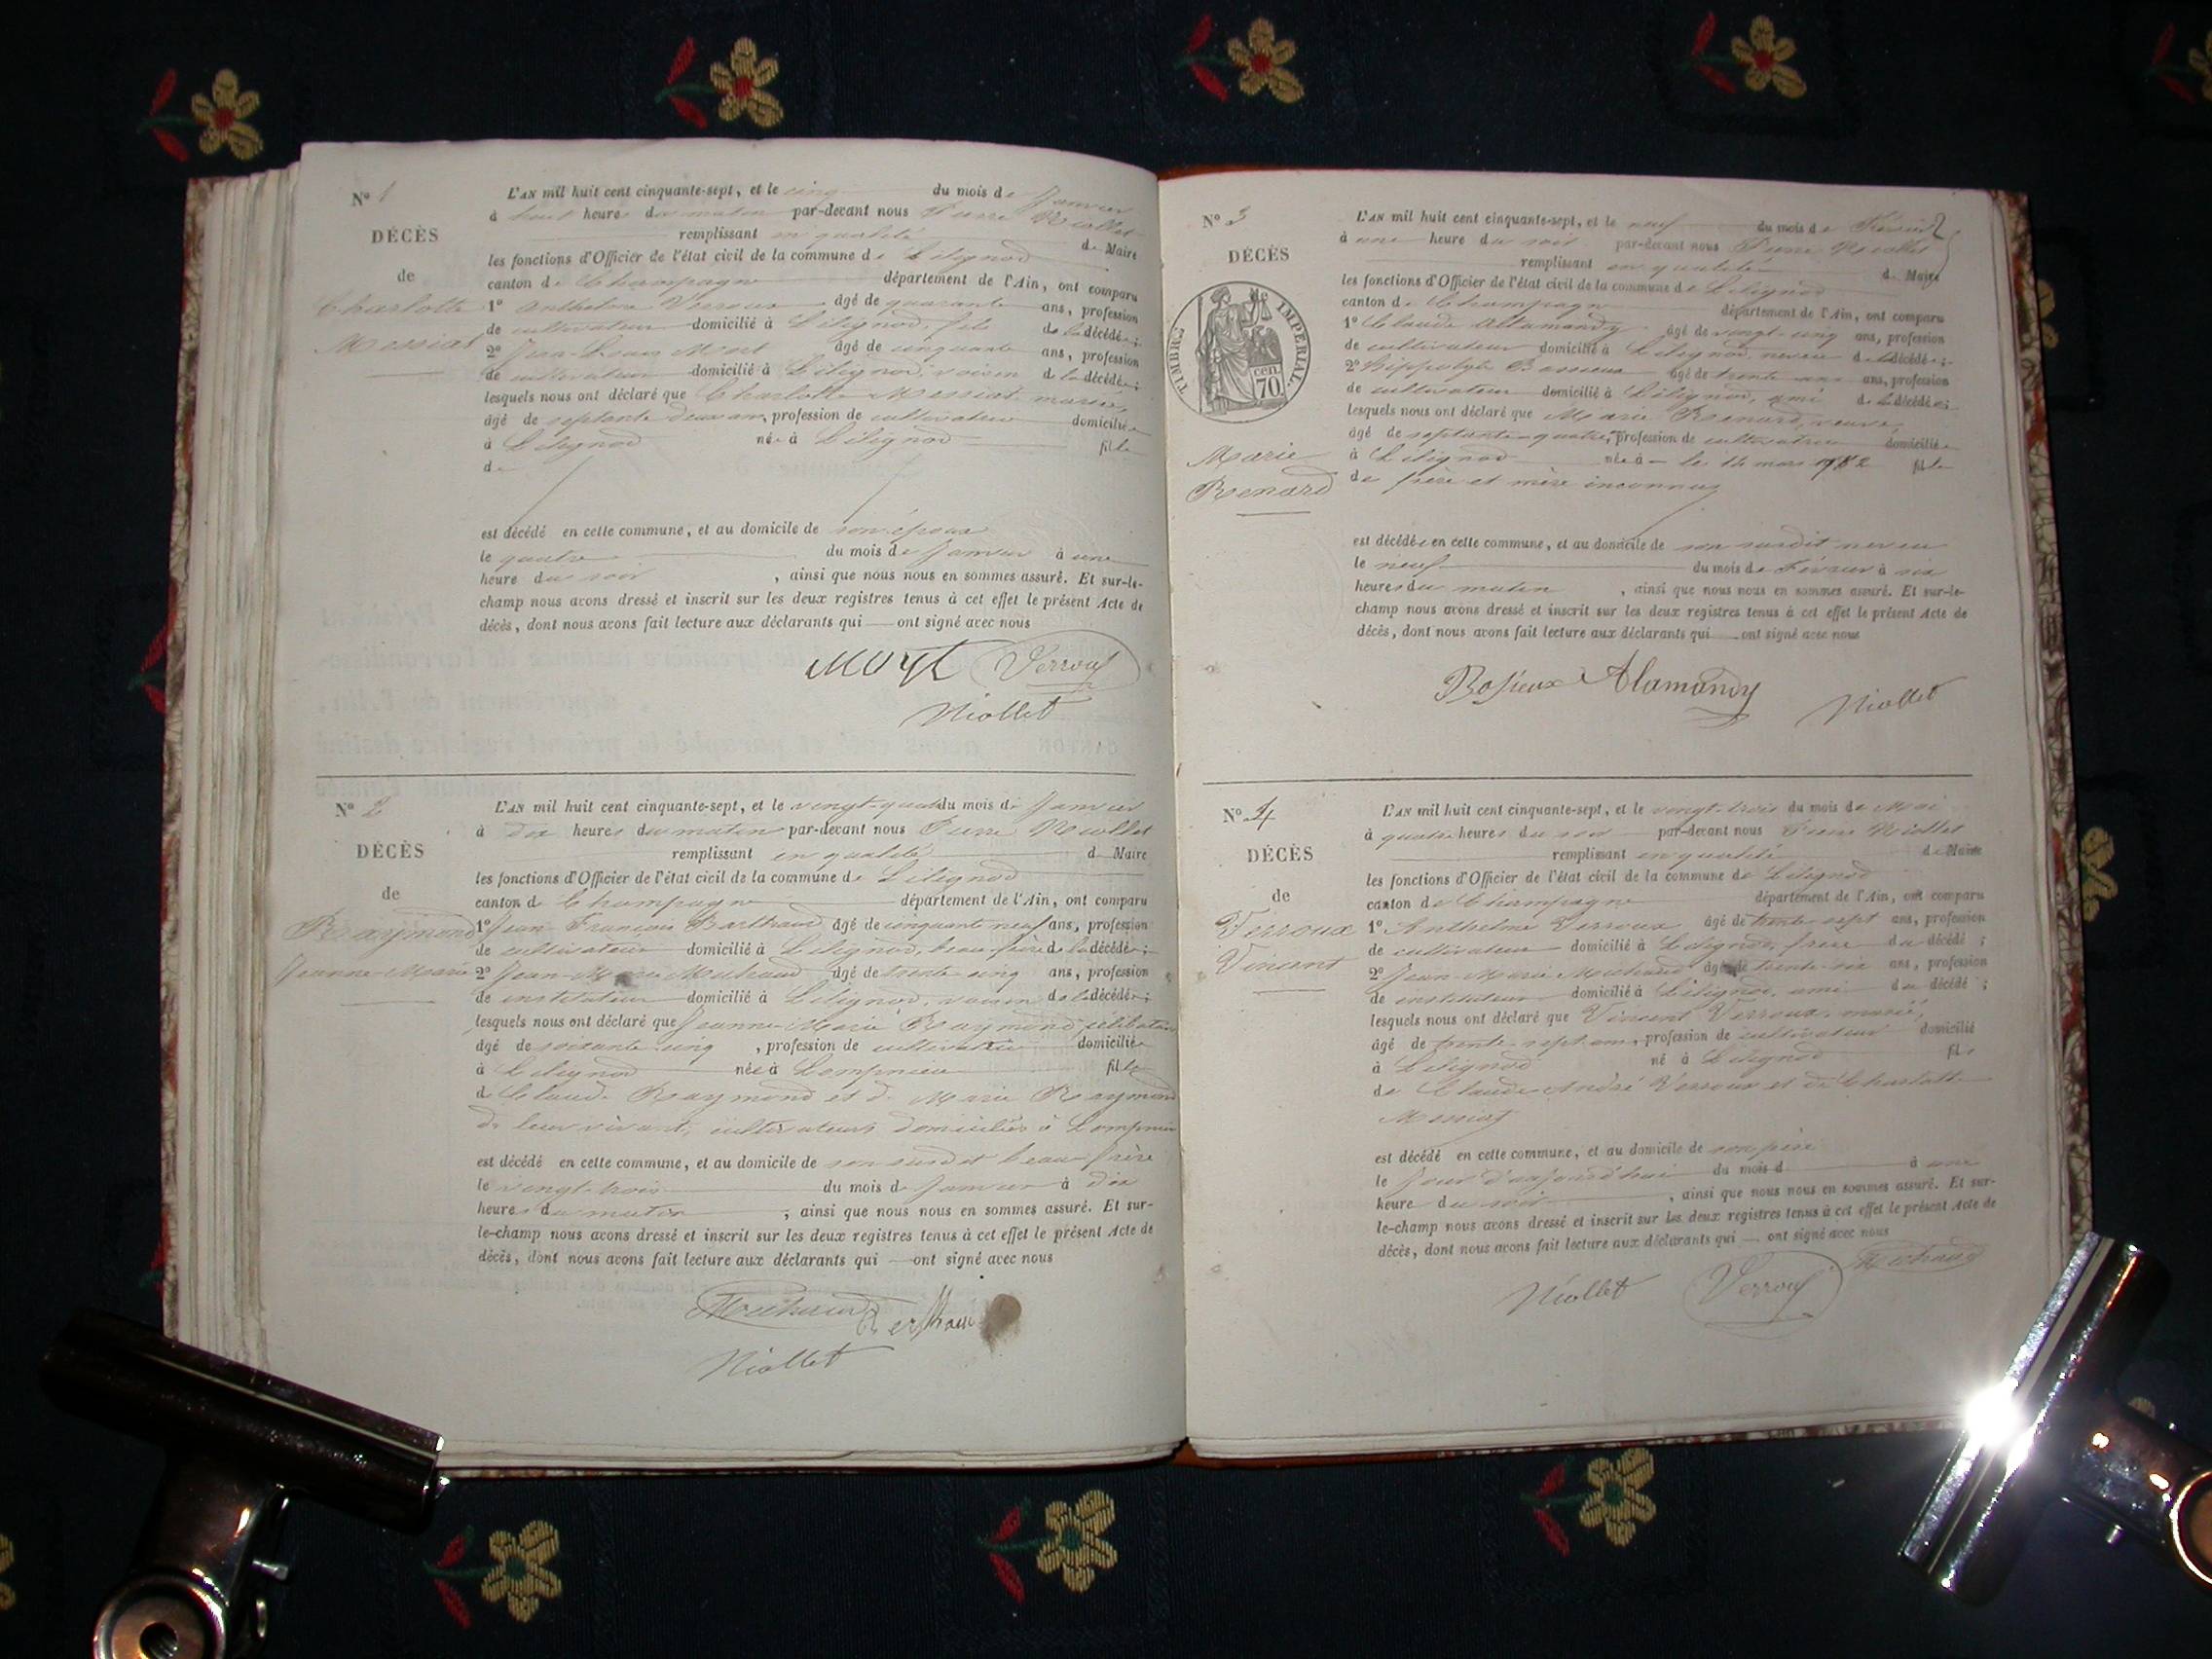 N° 1
DÉCÈS
de
Charlotte
Messiat
L'AN mil huit cent cinquante-sept, et le cinq du mois de Janvier
à huit heures du matin par-devant nous Pierre Niollet
remplissant en qualité de Maire
les fonctions d'Officier de l'état civil de la commune de Lilignod
canton de Champagne département de l'Ain, ont comparu
1° Anthelme Verroux âgé de quarante ans, profession
de cultivateur domicilié à Lilignod, fils de la décédée;
2° Jean-Louis Mort âgé de cinquante ans, profession
de cultivateur domicilié à Lilignod, voisin de la décédée;
lesquels nous ont déclaré que Charlotte Messiat mariée,
âgé de septante deux ans, profession de cultivatrice domiciliée
à Lilignod née à Lilignod fille
de
est décédé en cette commune, et au domicile de son époux
le quatre du mois de Janvier à une
heure du soir, ainsi que nous nous en sommes assuré. Et sur-le-
champ nous avons dressé et inscrit sur les deux registres tenus à cet effet le présent Acte de
décès, dont nous avons fait lecture aux déclarants qui ont signé avec nous
Verroux
Niollet
N° 2
DÉCÈS
de
Raymond
Jeanne-Marie
L'AN mil huit cent cinquante-sept, et le vingt-quatre du mois de Janvier
à dix heures du matin par-devant nous Pierre Niollet
remplissant en qualité de Maire
les fonctions d'Officier de l'état civil de la commune de Lilignod
canton de Champagne département de l'Ain, ont comparu
1° Jean François Barthaud âgé de cinquante neuf ans, profession
de cultivateur domicilié à Lilignod, beau-frère de la décédée;
2° Jean-Marie Michaud âgé de trente-cinq ans, profession
de instituteur domicilié à Lilignod, voisin de la décédée;
lesquels nous ont déclaré que Jeanne-Marie Raymond célibataire
âgé de soixante-cinq, profession de cultivatrice domiciliée
à Lilignod née à Lompnieu fille
de Claude Raymond et de Marie Raymond
de leur vivant, cultivateurs domiciliés à Lompnieu
est décédé en cette commune, et au domicile de son susdit beau-frère
le vingt-trois du mois de Janvier à dix
heures du matin, ainsi que nous nous en sommes assuré. Et sur-
le-champ nous avons dressé et inscrit sur les deux registres tenus à cet effet le présent Acte de
décès, dont nous avons fait lecture aux déclarants qui ont signé avec nous
Michaud
Niollet
N° 3
DÉCÈS
de
TIMBRE IMPERIAL.
70 cen.
Marie
Renard
L'AN mil huit cent cinquante-sept, et le neuf du mois de Février
à une heure du soir par-devant nous Pierre Niollet
remplissant en qualité de Maire
les fonctions d'Officier de l'état civil de la commune de Lilignod
canton de Champagne département de l'Ain, ont comparu
1° Claude Allamandy âgé de vingt-cinq ans, profession
de cultivateur domicilié à Lilignod, neveu de la décédée;
2° Hippolyte Bossieux âgé de trente ans ans, profession
de cultivateur domicilié à Lilignod, ami de la décédée;
lesquels nous ont déclaré que Marie Renard, veuve,
âgé de septante-quatre, profession de cultivatrice domiciliée
à Lilignod née à le 14 mars 1782 fille
de père et mère inconnus
est décédée en cette commune, et au domicile de son susdit neveu
le neuf du mois de Février à six
heures du matin, ainsi que nous nous en sommes assuré. Et sur-le-
champ nous avons dressé et inscrit sur les deux registres tenus à cet effet le présent Acte de
décès, dont nous avons fait lecture aux déclarants qui ont signé avec nous
Bosieux Alamandy Niollet
N° 4
DÉCÈS
de
Verroux
Vincent
L'AN mil huit cent cinquante-sept, et le vingt-trois du mois de Mai
à quatre heures du soir par-devant nous Pierre Niollet
remplissant en qualité de Maire
les fonctions d'Officier de l'état civil de la commune de Lilignod
canton de Champagne département de l'Ain, ont comparu
1° Anthelme Verroux âgé de trente-sept ans, profession
de cultivateur domicilié à Lilignod, frère du décédé;
2° Jean-Marie Michaud âgé de trente-six ans, profession
de instituteur domicilié à Lilignod, ami du décédé;
lesquels nous ont déclaré que Vincent Verroux, marié,
âgé de trente-sept ans, profession de cultivateur domicilié
à Lilignod né à Lilignod fils
de Claude André Verroux et de Charlotte
Messiat
est décédé en cette commune, et au domicile de son père
le jour d'aujourd'hui du mois d à une
heure du soir, ainsi que nous nous en sommes assuré. Et sur-
le-champ nous avons dressé et inscrit sur les deux registres tenus à cet effet le présent Acte de
décès, dont nous avons fait lecture aux déclarants qui ont signé avec nous
Niollet Verroux Michaud